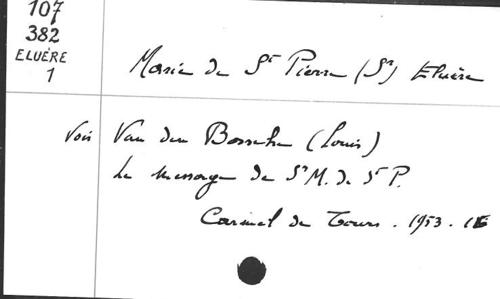 107
382
ELUÈRE
1
Marie de St Pierre (Sr) Eluère
Voir Van den Bossche (Louis)
Le message de Sr M. de St P.
Carmel de Tours. 1953.